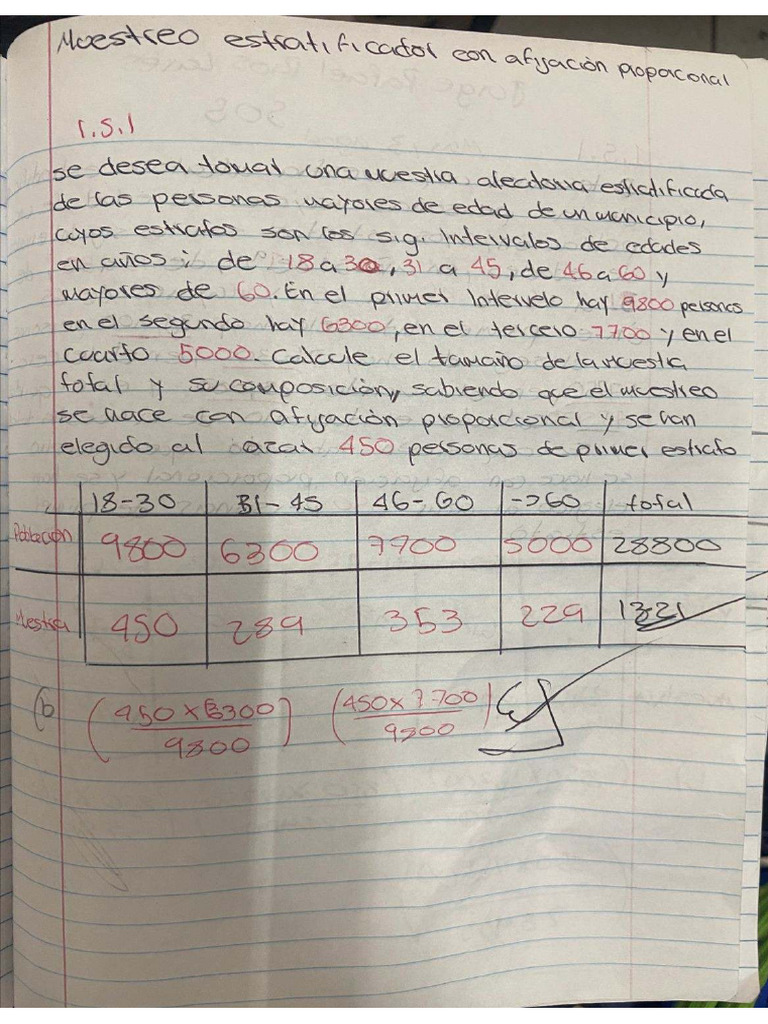 Muestreo estratificador con afijación proporconal
1.S.1
se desea tomar una muestra aleatoria estratificada
de las personas mayores de edad de un municipio,
cuyos estratos son los sig. Intervalos de edades
en años; de 18 a 30, 31 a 45, de 46 a 60 y
mayores de 60. En el primer Intervelo hay 9800 personas
en el segundo hay 6300, en el tercero 7700 y en el
cuarto 5000. Calcule el tamaño de la muestra
total y su composición, sabiendo que el muestreo
se hace con afijación proporcional y se han
elegido al azar 450 personas de primer estrato
18-30 31-45 46-60 ->60 total
Población 9800 6300 7700 5000 28800
Muestra 450 289 353 229 1321
(b (450 x 6300 / 9800) (450 x 7700 / 9800)